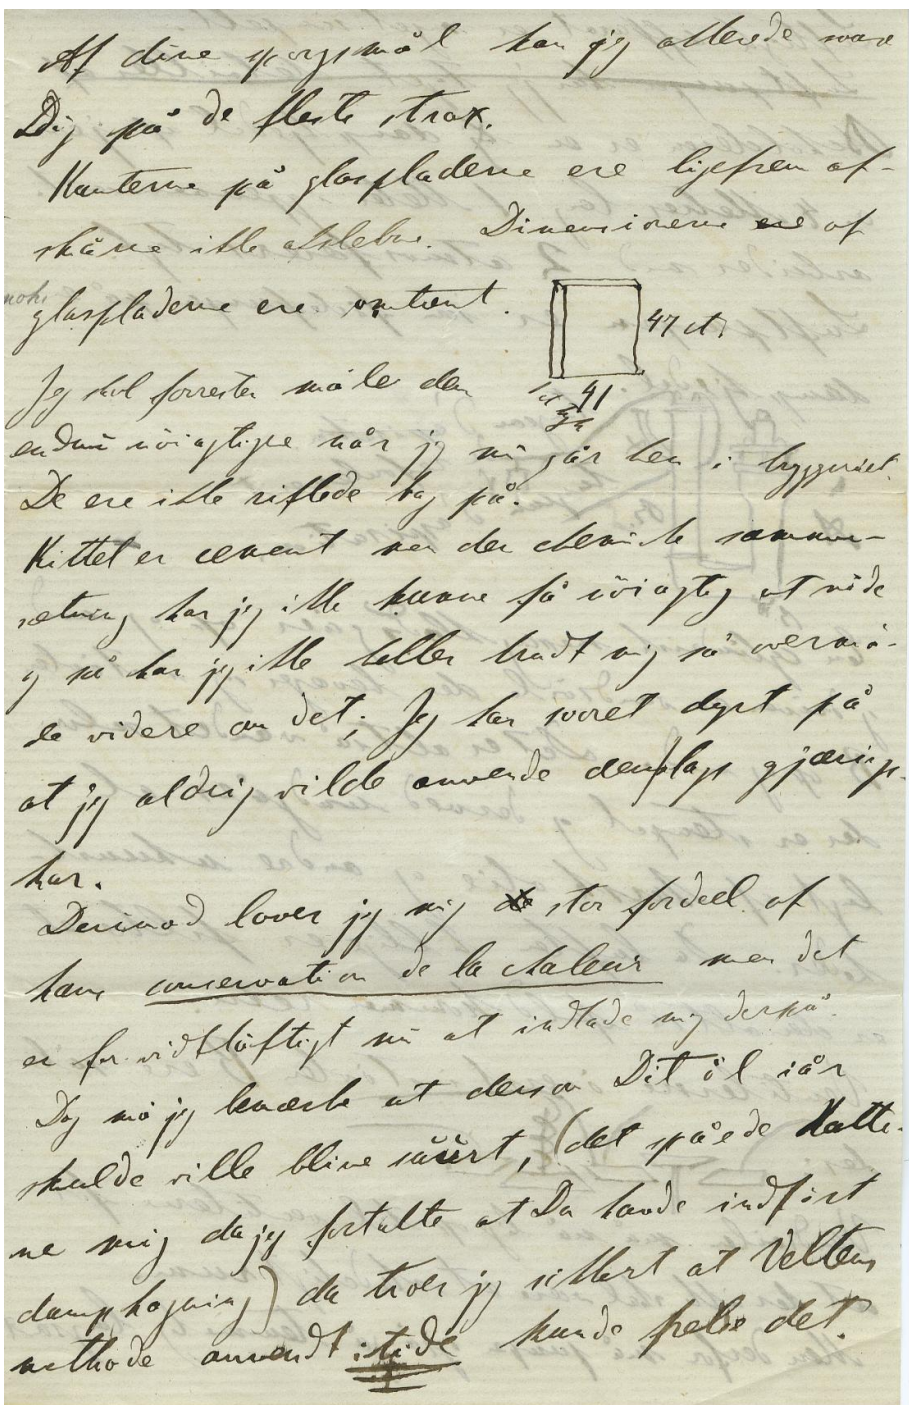 Af dine spørgsmål kan jeg allerede svare
Dig på de fleste strax.
Kanterne på glaspladerne ere ligefrem af-
skårne ikke afslebne. Dimensionerne ere af
glaspladerne ere omtrent.
47 ct.
41
Jeg skal forresten måle dem
endnu nöiagtigere når jeg nu går hen i bryggeriet.
De ere ikke riflede bag på.
Kittet er cement men den chemiske sammen-
sætning har jeg ikke kunne få nöiagtig at vide
og nu har jeg ikke heller brudt mig så overmå-
de videre om det; Jeg har svoret dyrt på
at jeg aldrig vilde anvende den slags gjærings-
kar.
Derimod lover jeg mig stor fordeel af
hans conservation de la chaleur men det
er for vidtløftigt nu at indlade mig derpå.
Dog må jeg bemærke at dersom Dit öl iår
skulde ville blive suurt, (det spåede Katte-
ne mig da jeg fortalte at Du havde indført
dampkogning) da troer jeg sikkert at Veltens
methode anvendt itide kunde frelse det.